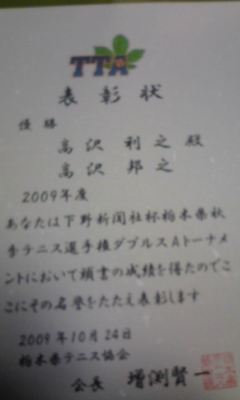 TTA
表彰状
優勝
高沢 利之 殿
高沢 邦之
2009年度
あなたは下野新聞社杯栃木県秋
季テニス選手権ダブルスAトーナメ
ントにおいて頭書の成績を得たのでこ
こにその名誉をたたえ表彰します
2009年10月24日
栃木県テニス協会
会長 増渕賢一